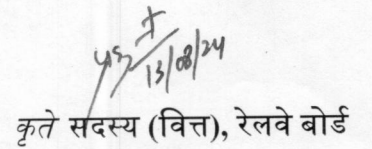 13/08/24
कृते सदस्य (वित्त), रेलवे बोर्ड